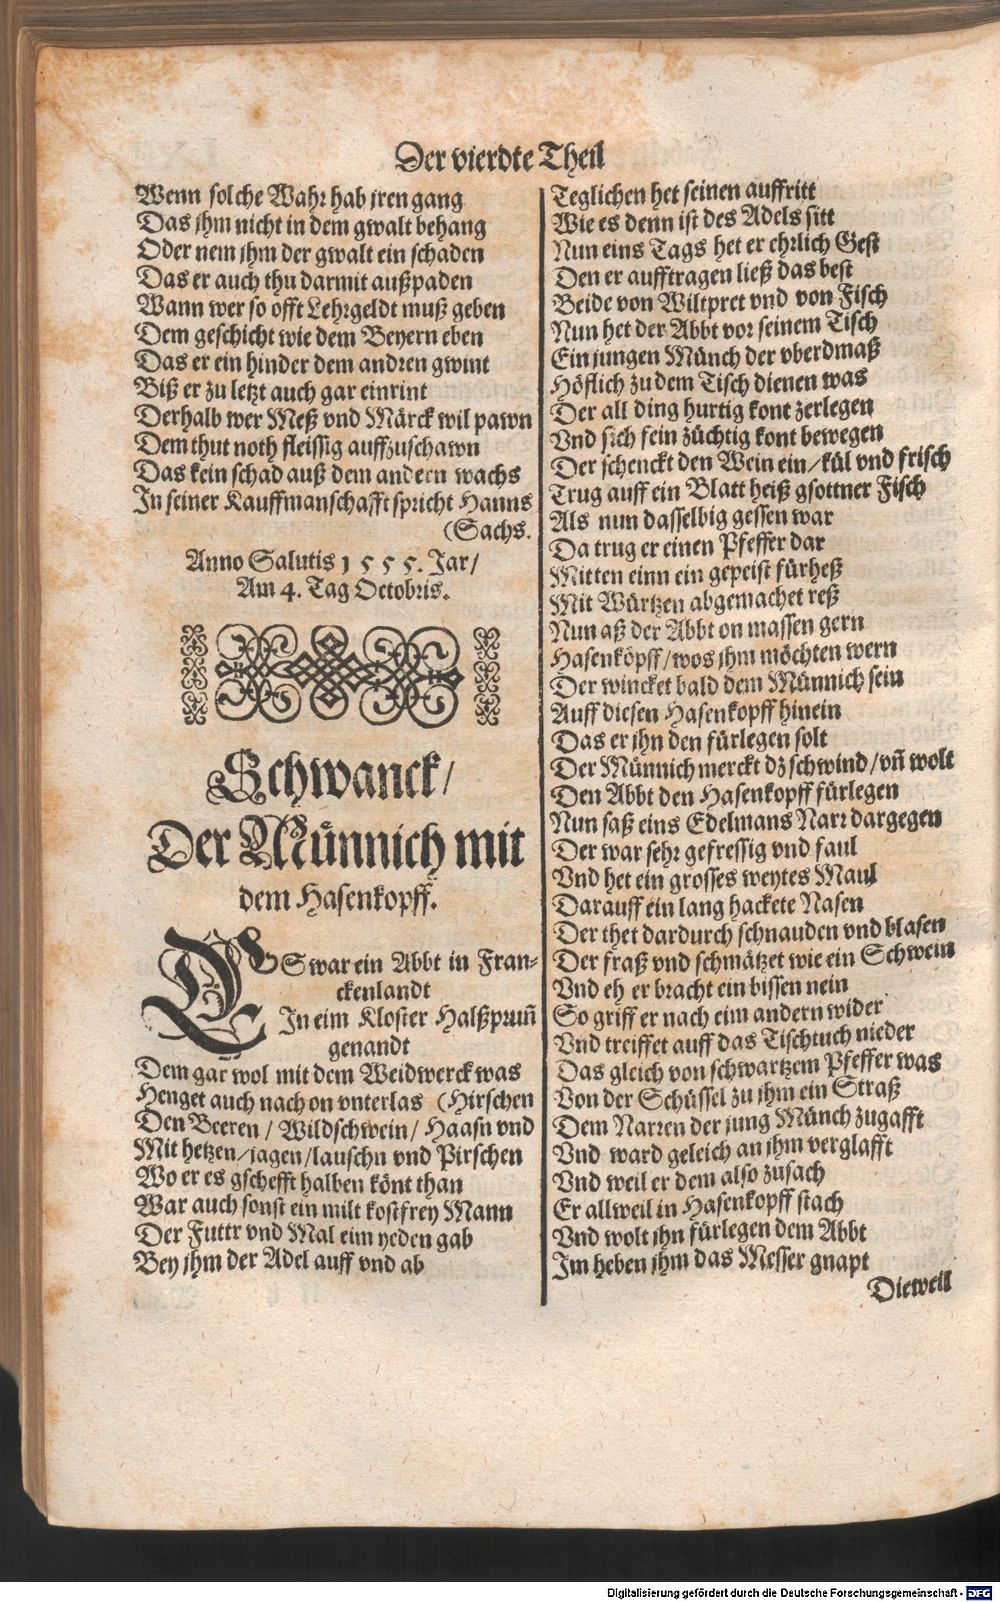 Der vierdte Theil
Wenn solche Wahr hab jren gang
Das jhm nicht in dem gwalt behang
Oder nem jhm der gwalt ein schaden
Das er auch thu darmit außpaden
Wann wer so offt Lehrgeldt muß geben
Dem geschicht wie dem Beyern eben
Das er ein hinder dem andren gwint
Biß er zu letzt auch gar einrint
Derhalb wer Meß vnd Märck wil pawn
Dem thut noth fleissig auffzuschawn
Das kein schad auß dem andern wachs
In seiner Kauffmanschafft spricht Hanns
(Sachs.
Anno Salutis 1555. Jar/
Am 4. Tag Octobris.
Schwanck/
Der Münnich mit
dem Hasenkopff.
ES war ein Abbt in Fran-
ckenlandt
In eim Kloster Halßprun̄
genandt
Dem gar wol mit dem Weidwerck was
Henget auch nach on vnterlas (Hirschen
Den Beeren/ Wildschwein/ Haasn vnd
Mit hetzen/jagen/lauschn vnd Pirschen
Wo er es gschefft halben könt than
War auch sonst ein milt kostfrey Mann
Der Futtr vnd Mal eim yeden gab
Bey jhm der Adel auff vnd ab
Teglichen het seinen auffritt
Wie es denn ist des Adels sitt
Nun eins Tags het er ehrlich Gest
Den er aufftragen ließ das best
Beide von Wiltpret vnd von Fisch
Nun het der Abbt vor seinem Tisch
Ein jungen Münch der vberdmaß
Höflich zu dem Tisch dienen was
Der all ding hurtig kont zerlegen
Vnd sich fein züchtig kont bewegen
Der schenckt den Wein ein/kül vnd frisch
Trug auff ein Blatt heiß gsottner Fisch
Als nun dasselbig gessen war
Da trug er einen Pfeffer dar
Mitten einn ein gepeist fürheß
Mit Würtzen abgemachet reß
Nun aß der Abbt on massen gern
Hasenköpff/wos jhm möchten wern
Der wincket bald dem Münnich sein
Auff diesen Hasenkopff hinein
Das er jhn den fürlegen solt
Der Münnich merckt dz schwind/vn̄ wolt
Den Abbt den Hasenkopff fürlegen
Nun saß eins Edelmans Narr dargegen
Der war sehr gefressig vnd faul
Vnd het ein grosses weytes Maul
Darauff ein lang hackete Nasen
Der thet dardurch schnauden vnd blasen
Der fraß vnd schmätzet wie ein Schwein
Vnd eh er bracht ein bissen nein
So griff er nach eim andern wider
Vnd treiffet auff das Tischtuch nieder
Das gleich von schwartzem Pfeffer was
Von der Schüssel zu jhm ein Straß
Dem Narren der jung Münch zugafft
Vnd ward geleich an jhm verglafft
Vnd weil er dem also zusach
Er allweil in Hasenkopff stach
Vnd wolt jhn fürlegen dem Abbt
Im heben jhm das Messer gnapt
Dieweil
Digitalisierung gefördert durch die Deutsche Forschungsgemeinschaft - DFG